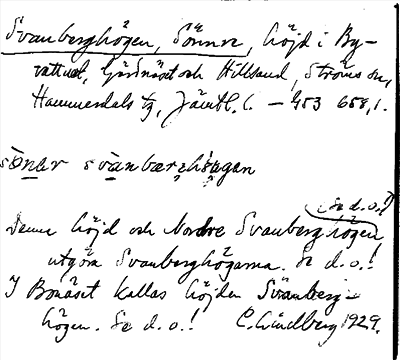 Svanberghögen, Sönnre, höjd i By-
vattnet, Gårdnäset och Hillsand, Ströms sn,
Hammerdals tg, Jämtl. l. – 453 658,1.
sönər svanbærəhögən
(Se d.o.!)
Denna höjd och Nordre Svanberghögen
utgöra Svanberghögarna. Se d.o.!
I Bonäset kallas höjden Svanberg-
högen. Se d.o.! C. Lindberg 1929.